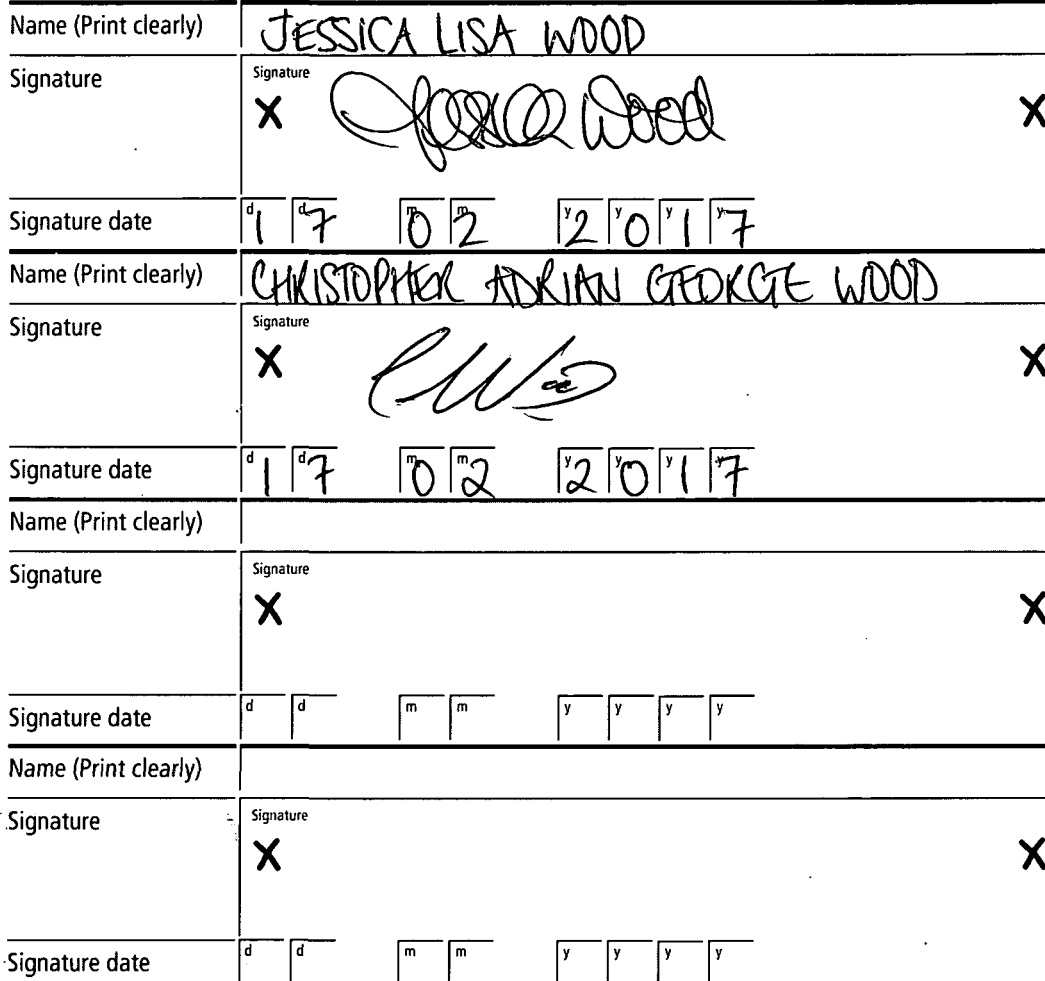 Name (Print clearly) JESSICA LISA WOOD
Signature
Signature
X Jessica Wood X
Signature date d d m m y y y y 17 02 2017
Name (Print clearly) CHRISTOPHER ADRIAN GEORGE WOOD
Signature
Signature
X CWood X
Signature date d d m m y y y y 17 02 2017
Name (Print clearly)
Signature
Signature
X X
Signature date d d m m y y y y
Name (Print clearly)
Signature
Signature
X X
Signature date d d m m y y y y